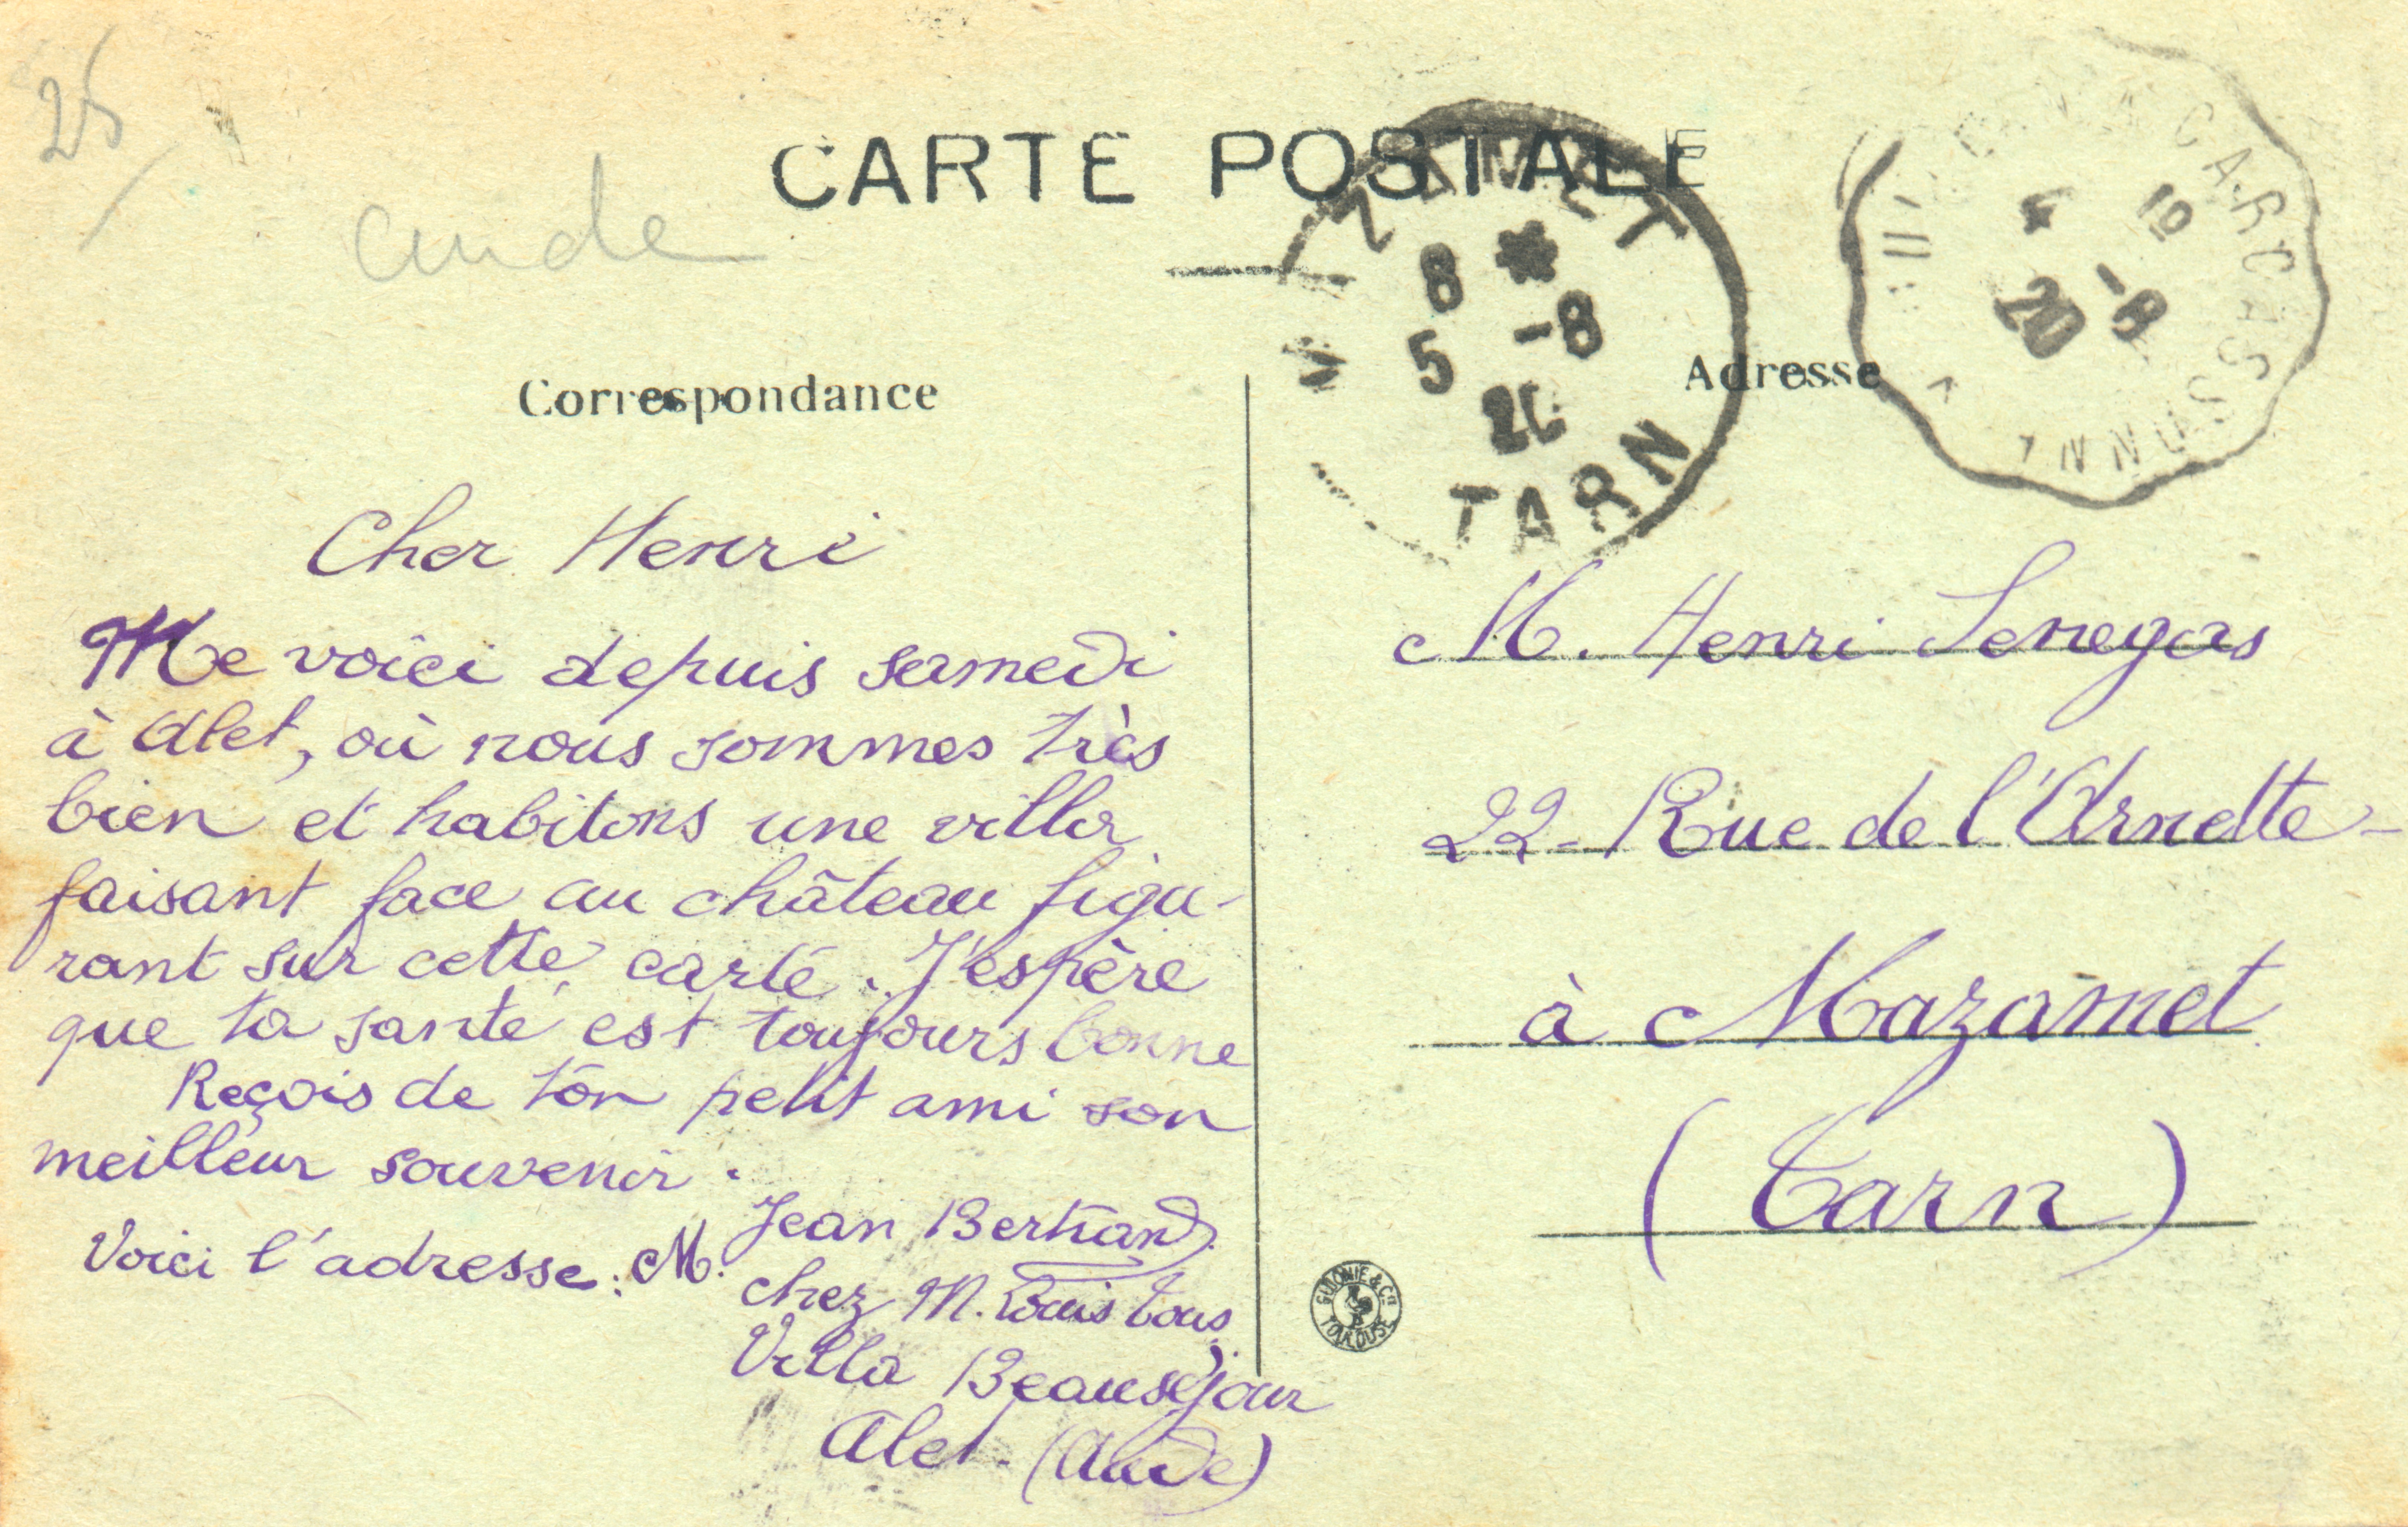 25
aude
CARTE POSTALE
MAZAMET
8 * 5 -8
20
TARN
CARCASSONNE
4 19
20 -8
Correspondance
Adresse
Cher Henri
Me voici depuis samedi
à Alet, où nous sommes très
bien et habitons une villa
faisant face au château figu-
rant sur cette carte. J'espère
que ta santé est toujours bonne
Reçois de ton petit ami son
meilleur souvenir.
Voici l'adresse: M. Jean Bertrand
chez M. Louis Cous
Villa Beauséjour
Alet - (Aude)
M. Henri Senegas
22 - Rue de l'Arnette -
à Mazamet
(Tarn)
TOULOUSE